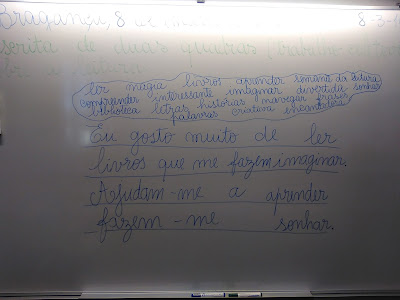 Bragança, 8 de
escrita de duas quadras (trabalho
ler magia livros aprender semana da leitura
compreender interessante imaginar divertido sonhar
biblioteca letras histórias navegar frases
palavras criativa encantadora
Eu gosto muito de ler
livros que me fazem imaginar.
Ajudam-me a aprender
fazem-me sonhar.